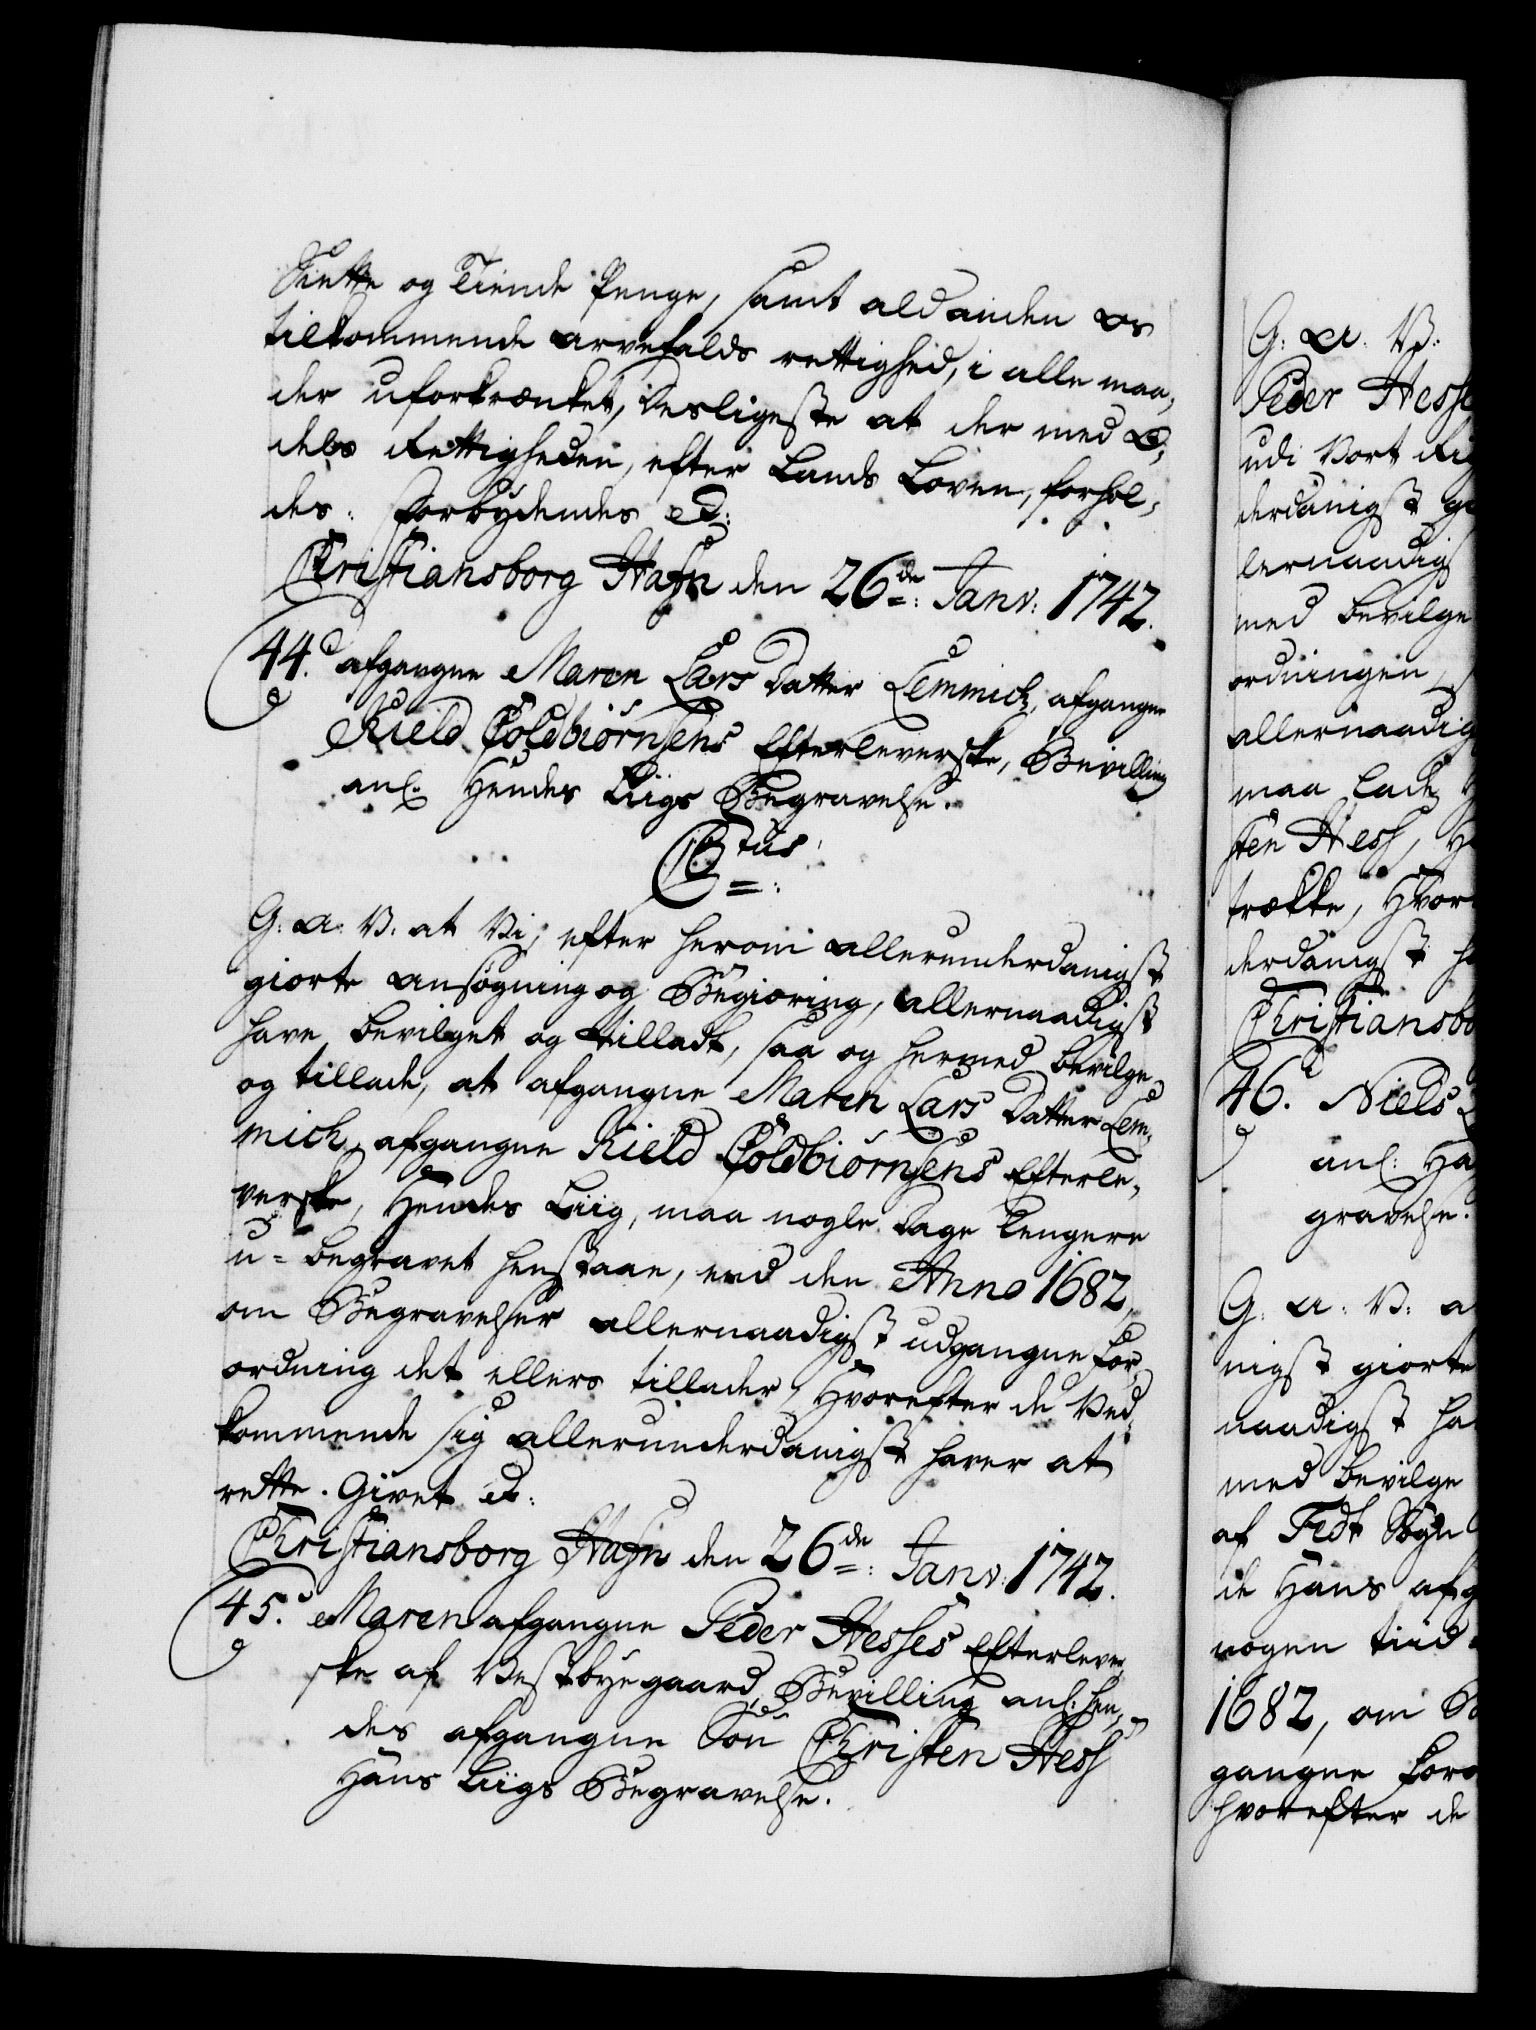 Siette og Tiende Penge, samt ald anden os
tilkommende arvefalds rettighed, i alle maa,
der uforkrænket, Desligeste at der med O,
dels Rettigheden, efter Lands Loven, forhol,
des: Forbydendes &:
Christiansborg Hafn den 26de: Janv: 1742.
44. afgangne Maren Lars Datter Lemmich, afgangne
Kield Coldbiørnsens Efterleverske, Bevilling
anl. Hendes Liigs Begravelse.
C6tus:
G: A: V: at Vi, efter herom allerunderdanigst
giorte ansøgning og Begiæring, allernaadigst
have bevilget og tilladt, saa og hermed bevilge
og tillade, at afgangne Maren Lars Datter Lem,
mich, afgangne Kield Coldbiørnsens Efterle,
verske, Hendes Liig, maa nogle Dage lengere
u-begravet henstaae, end den Anno 1682,
om Begravelser allernaadigst udgangne For,
ordning det ellers tillader, Hvorefter de Ved,
kommende sig allerunderdanigst haver at
rette. Givet &:
Christiansborg Hafn den 26de: Janv: 1742.
45. Maren afgangne Peder Hesses Efterlever,
ske af Vestbyegaard, Bevilling anl: hen,
des afgangne Søn Christen Hess
Hans Liigs Begravelse.
G: A: V:
Peder Hesse
udi Vort Rig
derdanigst gi
lernaadigs
med bevilge
ordningen,
allernaadig
maa lade H
sten Hess, H
trække, Hvor
derdanigst ha
Christiansbo
46. Niels
anl: Ha
gravelse.
G: A: V: a
nigst giorte
naadigst ha
med bevilge
af Tidt Sogn
de Hans afg
nogen tiid
1682, om B
gangne Foro
hvorefter de